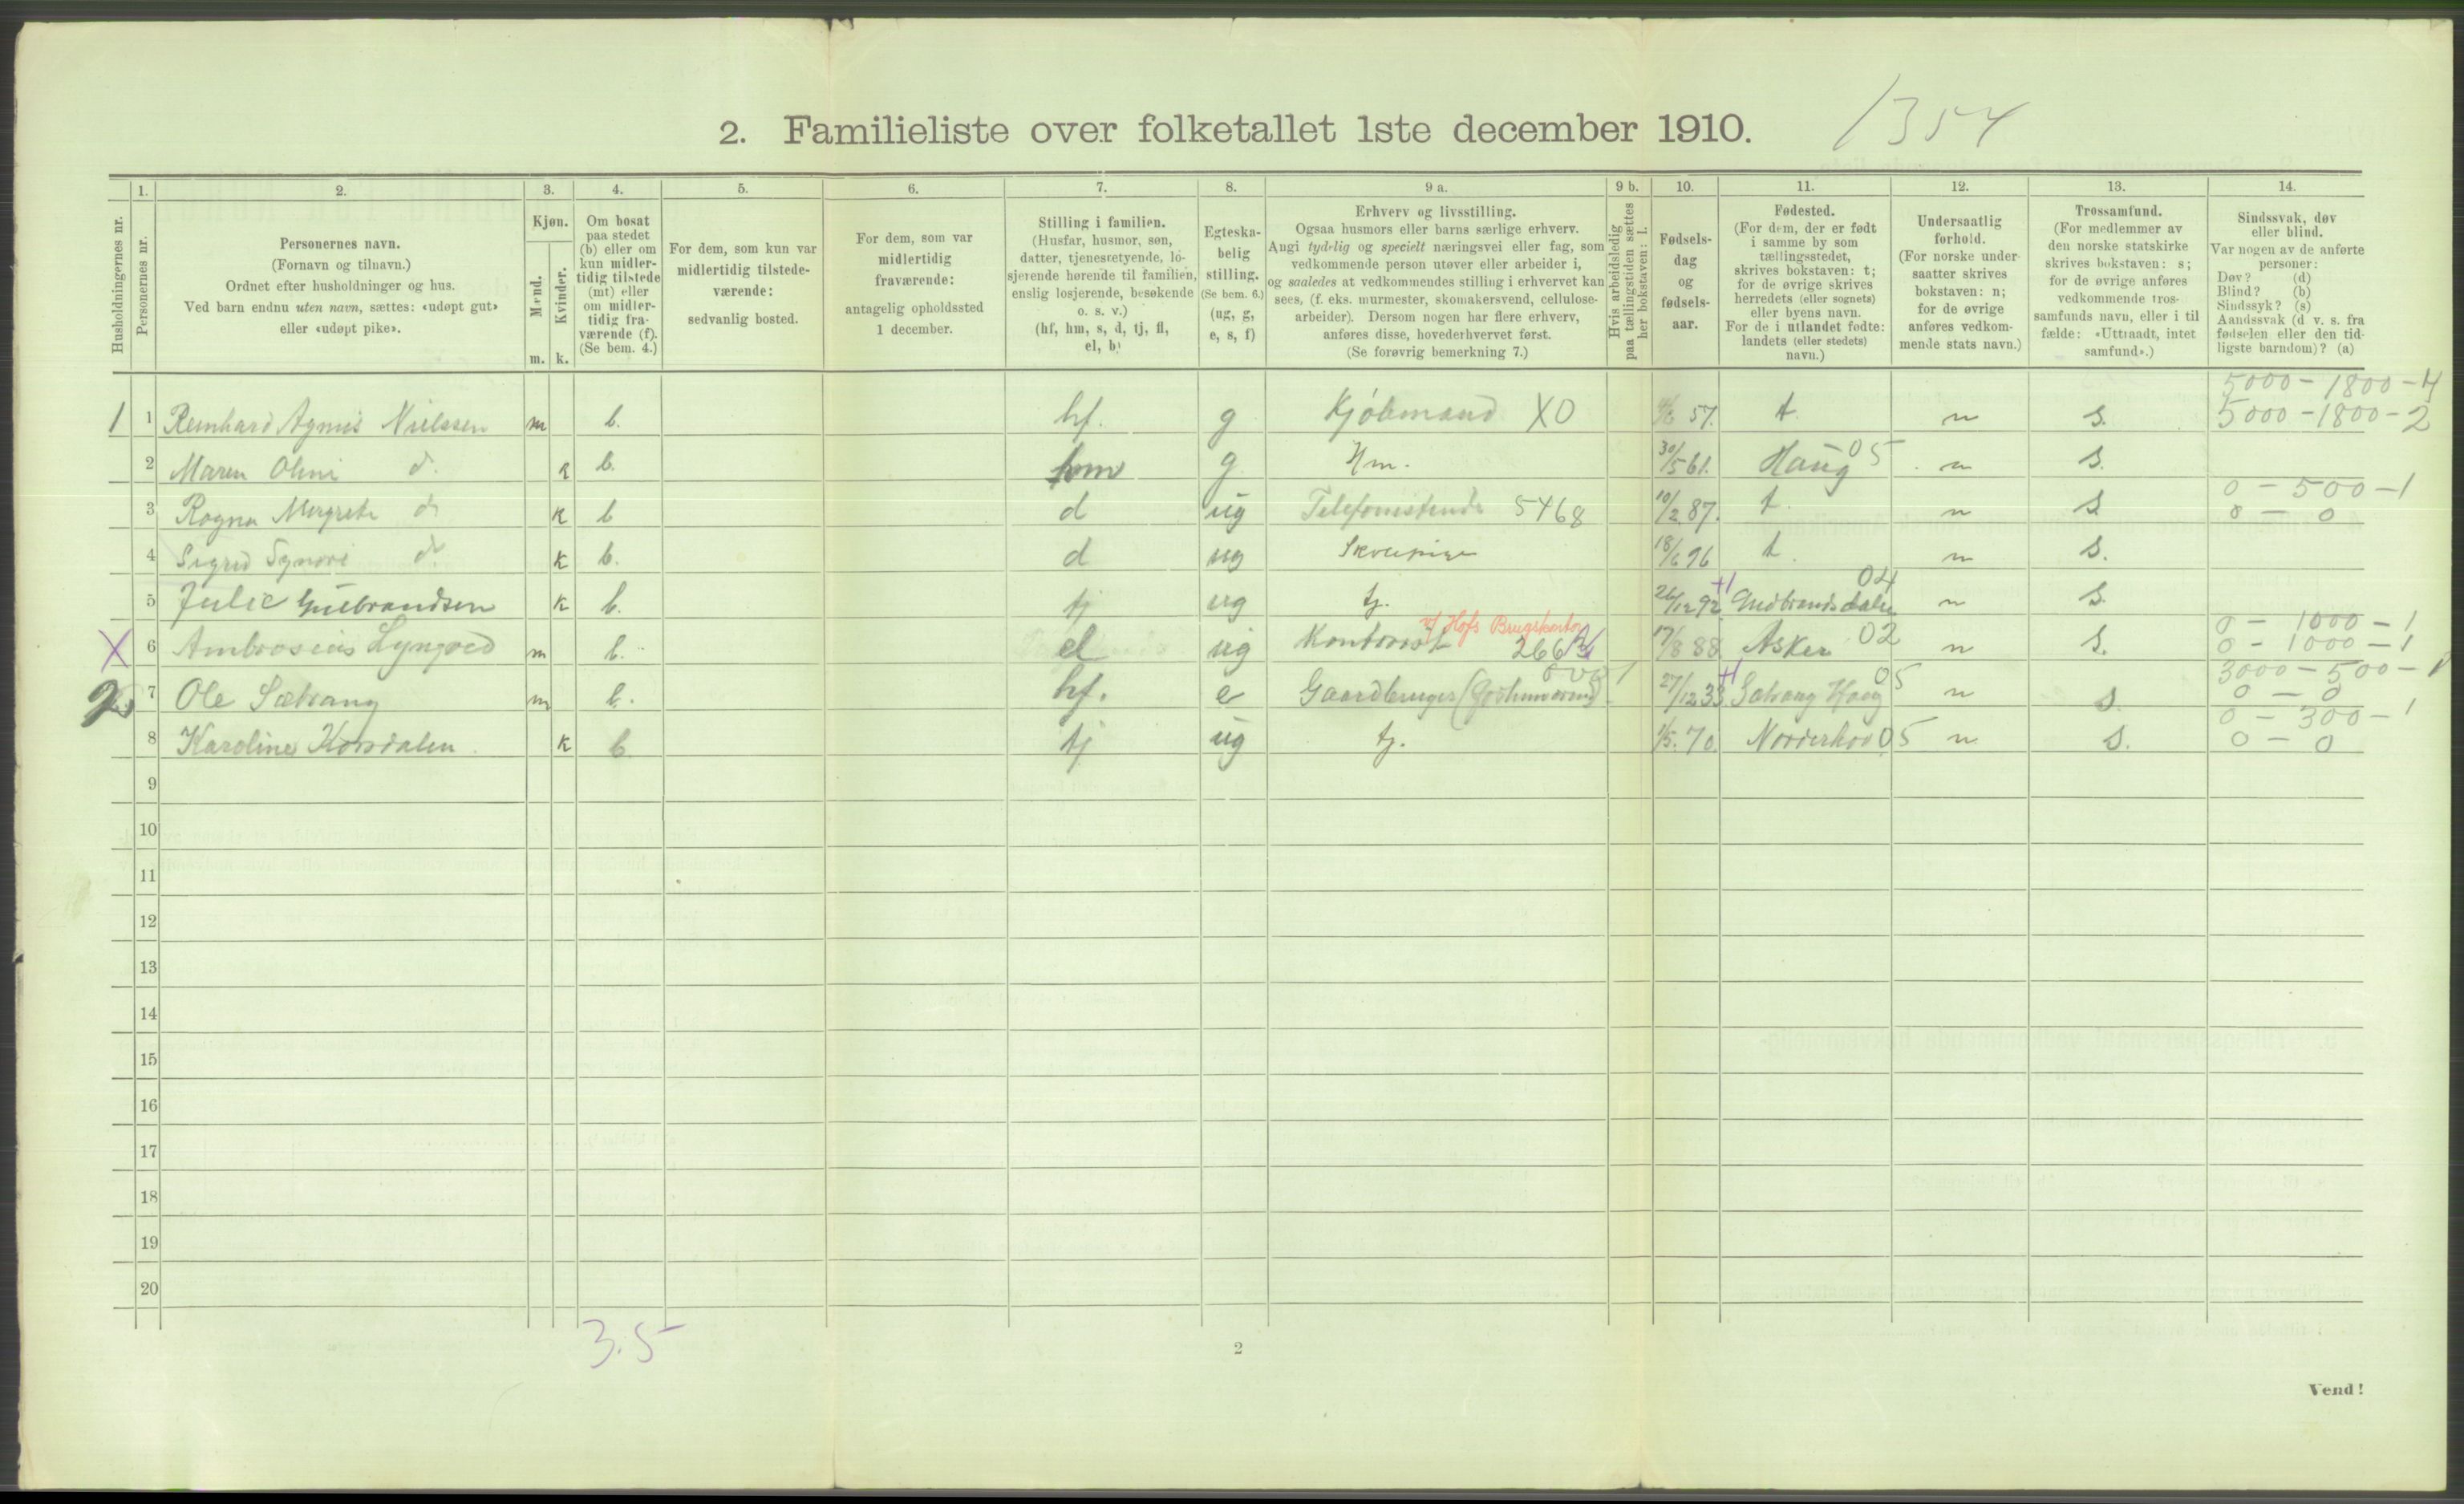 2. Familieliste over folketallet 1ste december 1910. 1354
Husholdningernes nr.
1.
Personernes nr.
2.
Personernes navn.
(Fornavn og tilnavn.)
Ordnet efter husholdninger og hus.
Ved barn endnu uten navn, sættes: «udøpt gut»
eller «udøpt pike».
3.
Kjøn.
Mænd.
Kvinder.
m. k.
4.
Om bosat
paa stedet
(b) eller om
kun midler-
tidig tilstede
(mt) eller
om midler-
tidig fra-
værende (f).
(Se bem. 4.)
5.
For dem, som kun var
midlertidig tilstede-
værende:
sedvanlig bosted.
6.
For dem, som var
midlertidig
fraværende:
antagelig opholdssted
1 december.
7.
Stilling i familien.
(Husfar, husmor, søn,
datter, tjenestetyende, lo-
sjerende hørende til familien,
enslig losjerende, besøkende
o. s. v.)
(hf, hm, s, d, tj, fl,
el, b)
8.
Egteska-
belig
stilling.
(Se bem. 6.)
(ug, g,
e, s, f)
9 a.
Erhverv og livsstilling.
Ogsaa husmors eller barns særlige erhverv.
Angi tydelig og specielt næringsvei eller fag, som
vedkommende person utøver eller arbeider i,
og saaledes at vedkommendes stilling i erhvervet kan
sees, (f. eks. murmester, skomakersvend, cellulose-
arbeider). Dersom nogen har flere erhverv,
anføres disse, hovederhvervet først.
(Se forøvrig bemerkning 7.)
9 b.
Hvis arbeidsledig
paa tællingstiden sættes
her bokstaven: l.
10.
Fødsels-
dag
og
fødsels-
aar.
11.
Fødested.
(For dem, der er født
i samme by som
tællingsstedet,
skrives bokstaven: t;
for de øvrige skrives
herredets (eller sognets)
eller byens navn.
For de i utlandet fødte:
landets (eller stedets)
navn.)
12.
Undersaatlig
forhold.
(For norske under-
saatter skrives
bokstaven: n;
for de øvrige
anføres vedkom-
mende stats navn.)
13.
Trossamfund.
(For medlemmer av
den norske statskirke
skrives bokstaven: s;
for de øvrige anføres
vedkommende tros-
samfunds navn, eller i til
fælde: «Uttraadt, intet
samfund».)
14.
Sindssvak, døv
eller blind.
Var nogen av de anførte
personer:
Døv? (d)
Blind? (b)
Sindssyk? (s)
Aandssvak (d v. s. fra
fødselen eller den tid-
ligste barndom)? (a)
5000 - 1800 - 4
1 1 Reinhard Agnus Nielssen m b. hf. g Kjøbmand XO 57. t. n s. 5000 - 1800 - 2
2 Maren Oline d. k b. hm g Hm. 30/5 61. Haug 05 n s.
0 - 500 - 1
3 Ragna Margrete d. k b d ug Telefonistinde 5468 10/2 87. t. n s 0 - 0
4 Sigrid Synøve d. k b. d ug Skolepige 18/6 96 t. n s.
5 Julie Gulbrandsen k b. tj ug tj. 26/12 92 +1 Gudbrandsdalen 04 n s.
v/ Hofs Brugskontor
0 - 1000 - 1
X 6 Ambrosius Lyngved m b. el ug Kontorist 266 17/8 88 Asker 02 n s. 0 - 1000 - 1
3000 - 500 - 1
2. 7 Ole Sætrang m b. hf. e Gaardbruger 27/12 33 +1 Sætrang Haug 05 n s. 0 - 0
0 - 300 - 1
8 Karoline Korsdalen k b tj ug tj. 1/5 70 Norderhov 05 n s. 0 - 0
9
10
11
12
13
14
15
16
17
18
19
20
3.5
2
Vend!